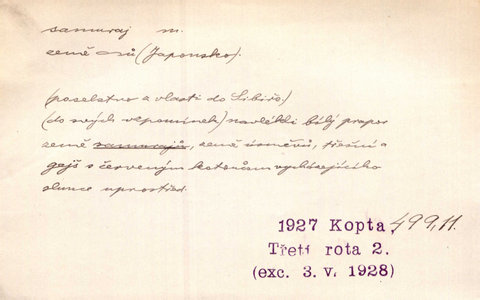 samuraj m.
země -ů (Japonsko).
(poselstvo a vlasti do Sibiře.)
(do svých vzpomínek) navlékli bílý prapor
země samurajů, země úsměvů, třešní a
gejš s červeným kotoučem vycházejícího
slunce uprostřed.
1927 Kopta, 499,11.
Třetí rota 2.
(exc. 3. v. 1928)